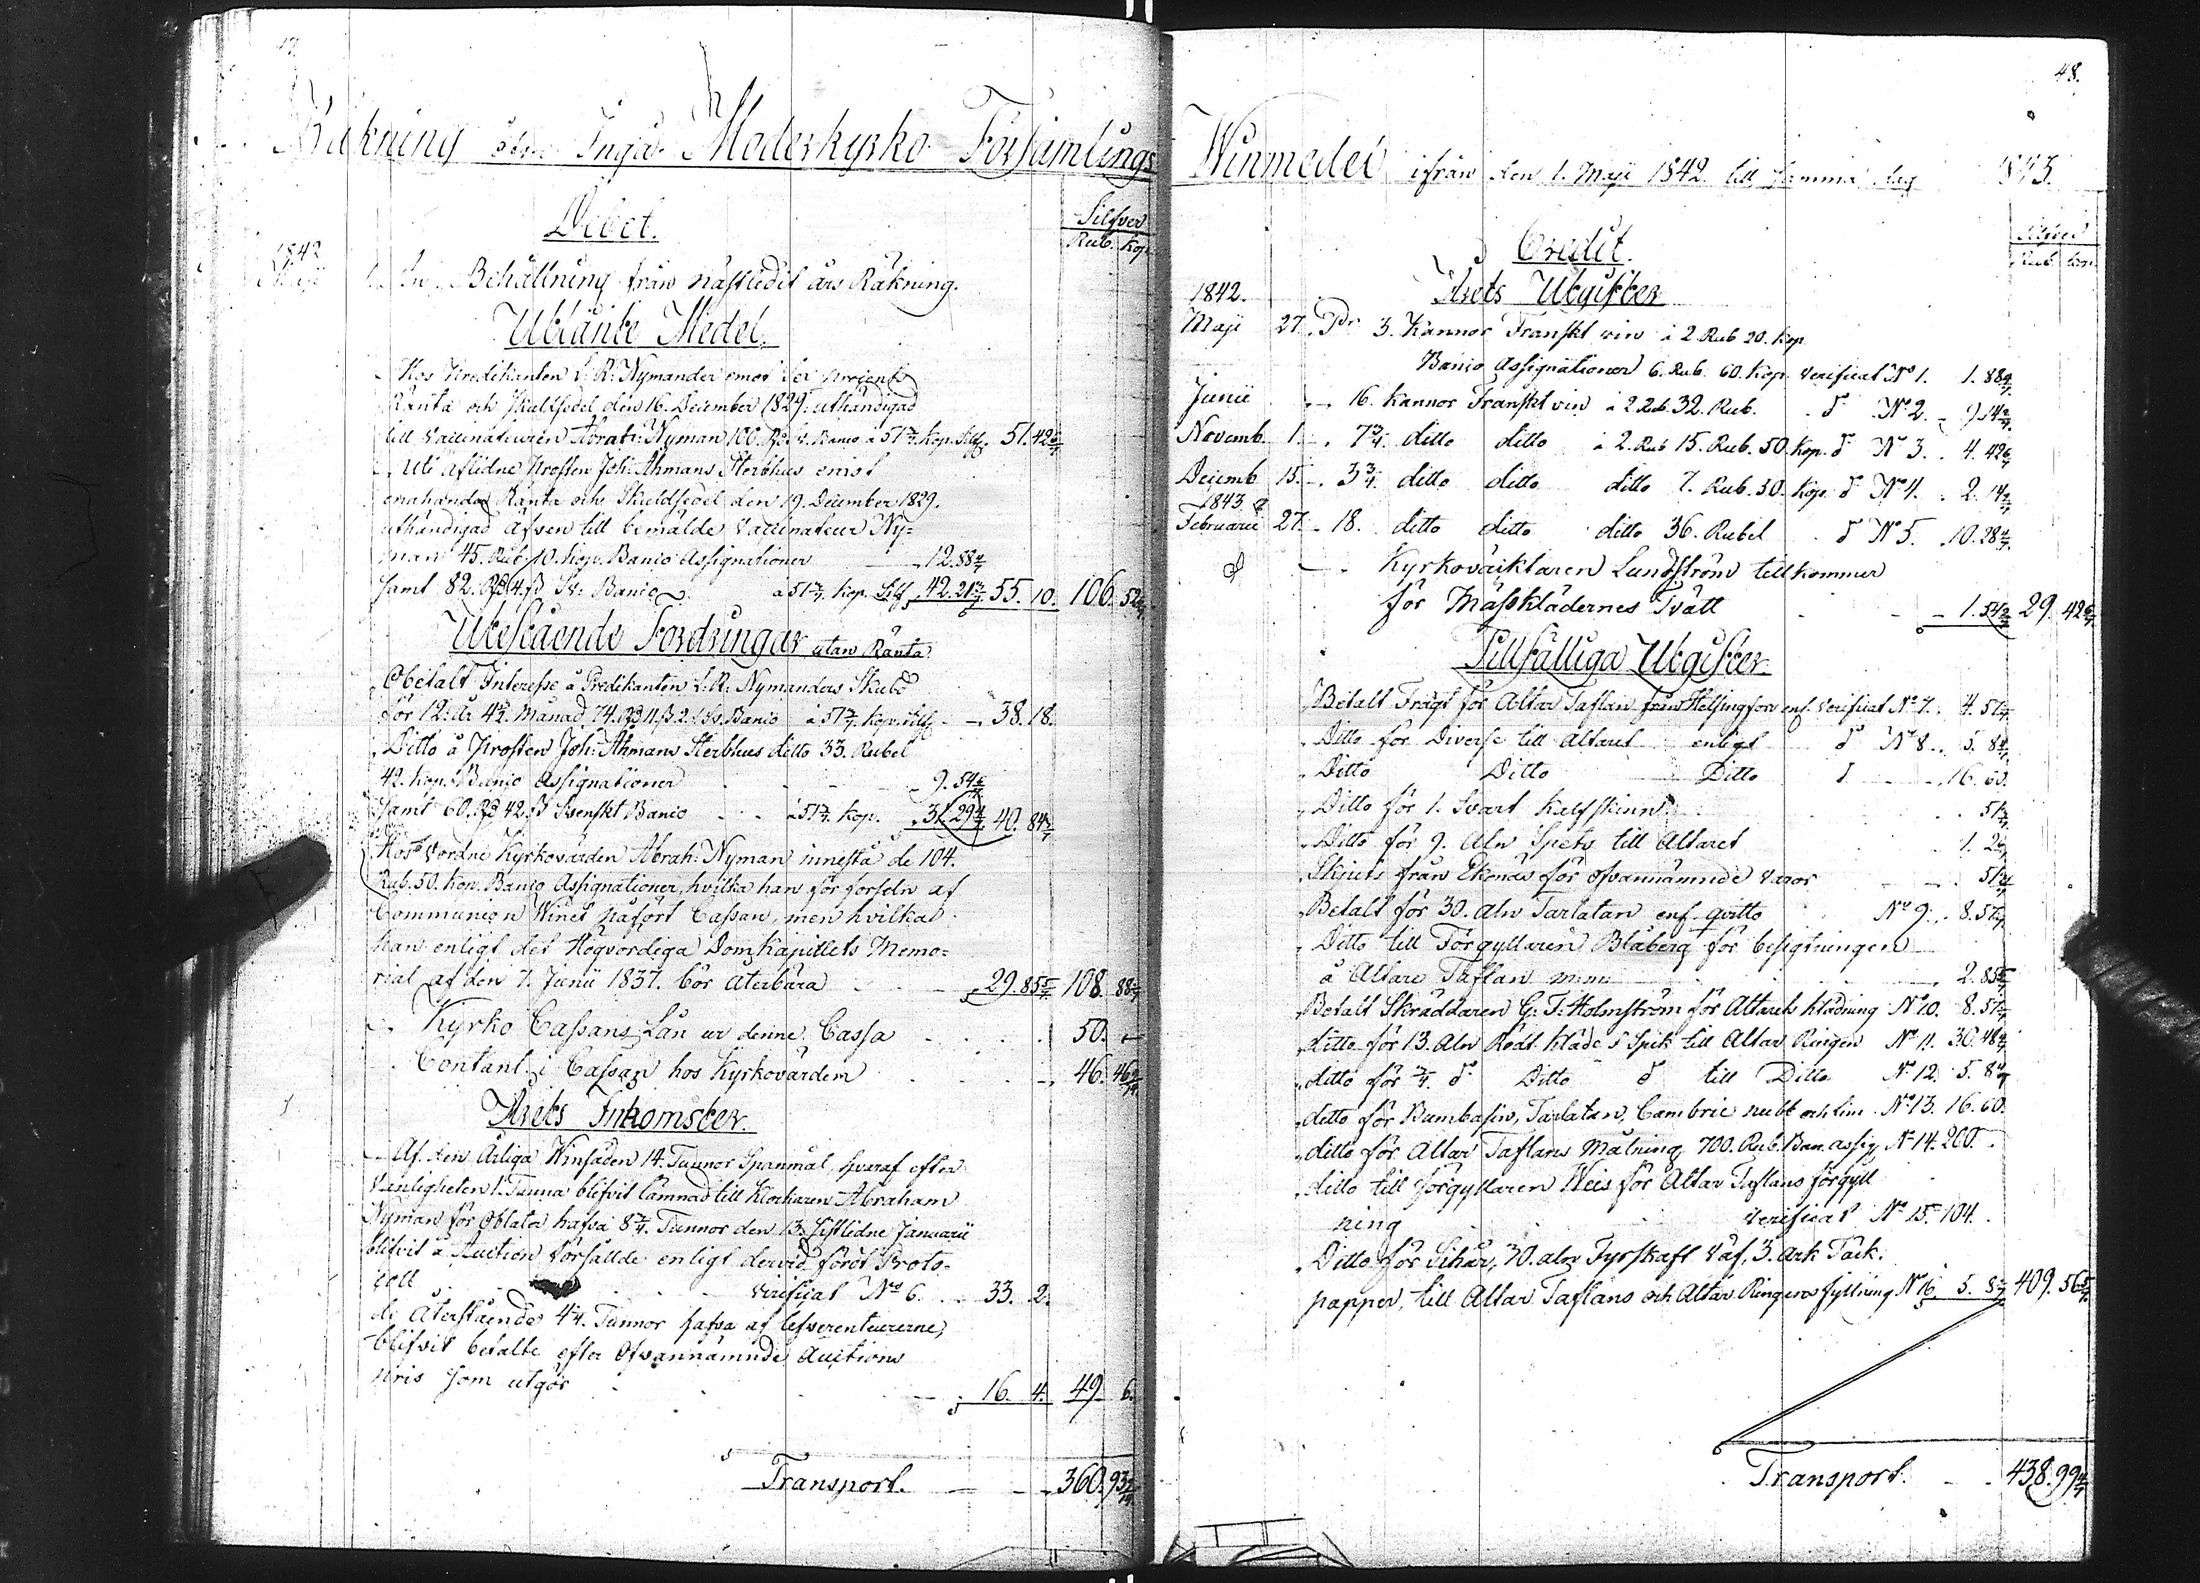 48.
Räkning öfver Ingå Moderkyrko Församlings
Debet.
Silfver
Rub. Kop.
1842
Maji
Behållning från nästledit års Räkning.
Utlänte Medel.
Hos Predikanten L: R: Nymander emot sex procents
Ränta och Skuldsedel den 16. December 1829. uthändigad
till Vaccinateuren Abrah: Nyman 100. Rd Sv. Banco à 51 3/7. Kop. Silf. 51. 42 6/7
Uti aflidne Prosten Joh: Ahmans Sterbhus emot
enahanda Ränta och Skuldsedel den 19. December 1829.
uthändigad äfven till bemälde Vaccinateur Ny=
man 45. Rub. 10. Kop. Banco Assignationer 12. 88 4/7
samt 82. Rd 4. ß Sv: Banco à 51 3/7. Kop. Silf. 42. 21 3/7 55. 10. 106. 52 6/7
Utestående Fordringar utan Ränta
Obetalt Interesse à Predikanten L: R: Nymanders Skuld
för 12. år 4 1/2. Månad 74. Rd 11. ß. 2. Sv. Banco à 51 3/7. Kop. Silf 38. 18.
Ditto à Prosten Joh: Ahmans Sterbhus ditto 33. Rubel
42. Kop. Banco Assignationer 9. 54 6/7
samt 60. Rd 42. ß Svenskt Banco à 51 3/7. Kop. 31. 29 4/7 40. 84 3/7
Hos Vordne Kyrkovärden Abrah: Nyman innestå de 104.
Rub. 50. Kop. Banco Assignationer, hvilka han för forseln af
Communion Winet påfört Cassan, men hvilka
han enligt det Högvordiga Domkapitlets Memo=
rial af den 7. Junii 1837. bör återbära 29. 85 5/7 108. 88 1/7
Kyrko Cassans Lån ur denne Cassa 50. —
Contant i Cassan hos Kyrkovärden 46. 46
Årets Inkomster.
Af den Årliga Winsäden 14. Tunnor Spanmål, hvaraf efter
Vanligheten 1. Tunna blifvit lämnad till Klockaren Abraham
Nyman för Oblater hafva 8 3/4. Tunnor den 13. sistledne Januarii
blifvit å Auction försållde enligt dervid fördt Proto=
coll Verificat No 6. 33. 2.
de Återstående 4 1/4. Tunnor hafva af lefverenteurerne,
blifvit betalte efter Ofvannämnde Auctions
pris som utgör 16. 4. 49. 6.
Transport. 360. 93
Winmedel ifrån den 1. Maji 1842. till samma dag 1843.
Credit.
Silfver
Rub. Kop.
Årets Utgifter
1842.
Maji 27. Pr 3. Kannor Franskt vin à 2. Rub 20. Kop
Banco Assignationer 6. Rub. 60. Kop. Verificat No 1. 1. 88 4/7
Junii 16. Kannor Franskt vin à 2. Rub. 32. Rub. do No 2. 9. 14 2/7
Novemb. 1. 7 3/4. ditto ditto à 2. Rub 15. Rub. 50. Kop. do No 3. 4. 42 6/7
Decemb. 15. 3 3/4. ditto ditto ditto 7. Rub. 50. Kop. do No 4. 2. 14 2/7
1843
Februarii 27. 18. ditto ditto ditto 36. Rubel do No 5. 10. 28 4/7
Kyrkoväcktaren Lundström tillkommer
för Mässklädernes Tvätt 1. 54 2/7 29. 42 6/7
Tillfälliga Utgifter.
Betalt Fragt för Altar Taflan från Helsingfors enl. Verificat No 7. 4. 57 1/7
Ditto för Diverse till Altaret enligt do No 8. 5. 8 4/7
Ditto Ditto Ditto 16. 60.
Ditto för 1. Svart Kalfskinn 51 3/7
Ditto för 9. Aln Spets till Altaret 1. 2 6/7
Skjuts från Ekenäs för ofvannämnde varor 51 3/7
Betalt för 30. Aln Tarlatan enl. qvitto No 9. 8. 57 1/7
Ditto till Förgyllaren Blåberg för besigtningen
å Altare Taflan m:m: 2. 85 5/7
Betalt Skräddaren G: F: Holmström för Altarets klädning No 10. 8. 57 1/7
ditto för 13. Aln Rödt kläde o Spik till Altar Ringen No 11. 30. 48 4/7
ditto för 3/4. do Ditto do till Ditto No 12. 5. 8 4/7
ditto för Bumbasin, Tarlatan, Cambric nubb och lim No 13. 16. 60.
ditto för Altar Taflans Målning 700. Rub. Ban. assig No 14. 200. —
ditto till Förgyllaren Weis för Altar Taflans förgyll
ning Verificat No 15. 104.
Ditto för Sihår, 30. aln Fyrskaft Väf, 3. Ark Täck.
papper, till Altar Taflans och Altar Ringens fyllning No 16. 5. 8 4/7 409. 56 5/7
Transport. 438. 99 4/7